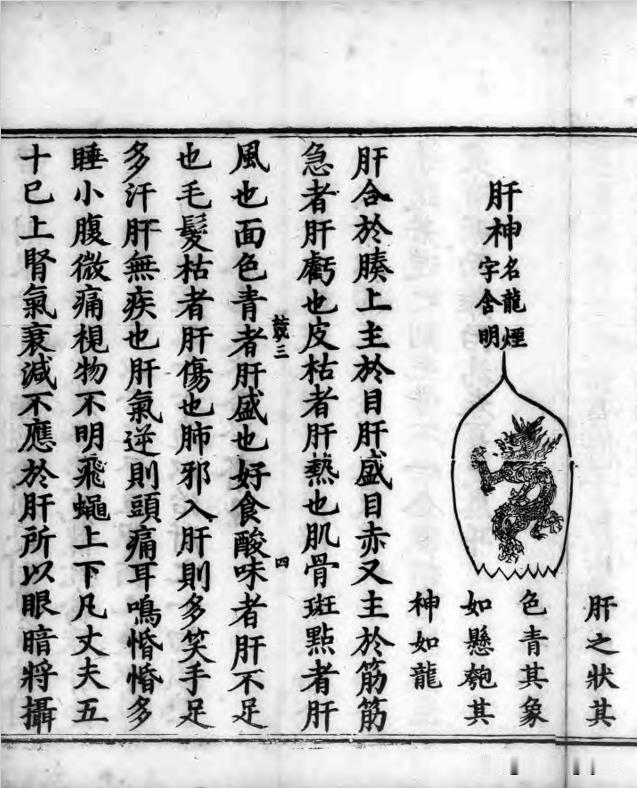 肝之狀其
色青其象
如懸匏其
神如龍
肝神名龍煙
字含明
肝合於腠上主於目肝盛目赤又主於筋筋
急者肝虧也皮枯者肝熱也肌骨斑點者肝
風也面色青者肝盛也好食酸味者肝不足
也毛髮枯者肝傷也肺邪入肝則多笑手足
多汗肝無疾也肝氣逆則頭痛耳鳴惛惛多
睡小腹微痛視物不明飛蠅上下凡丈夫五
十已上腎氣衰減不應於肝所以眼暗將攝
三
四